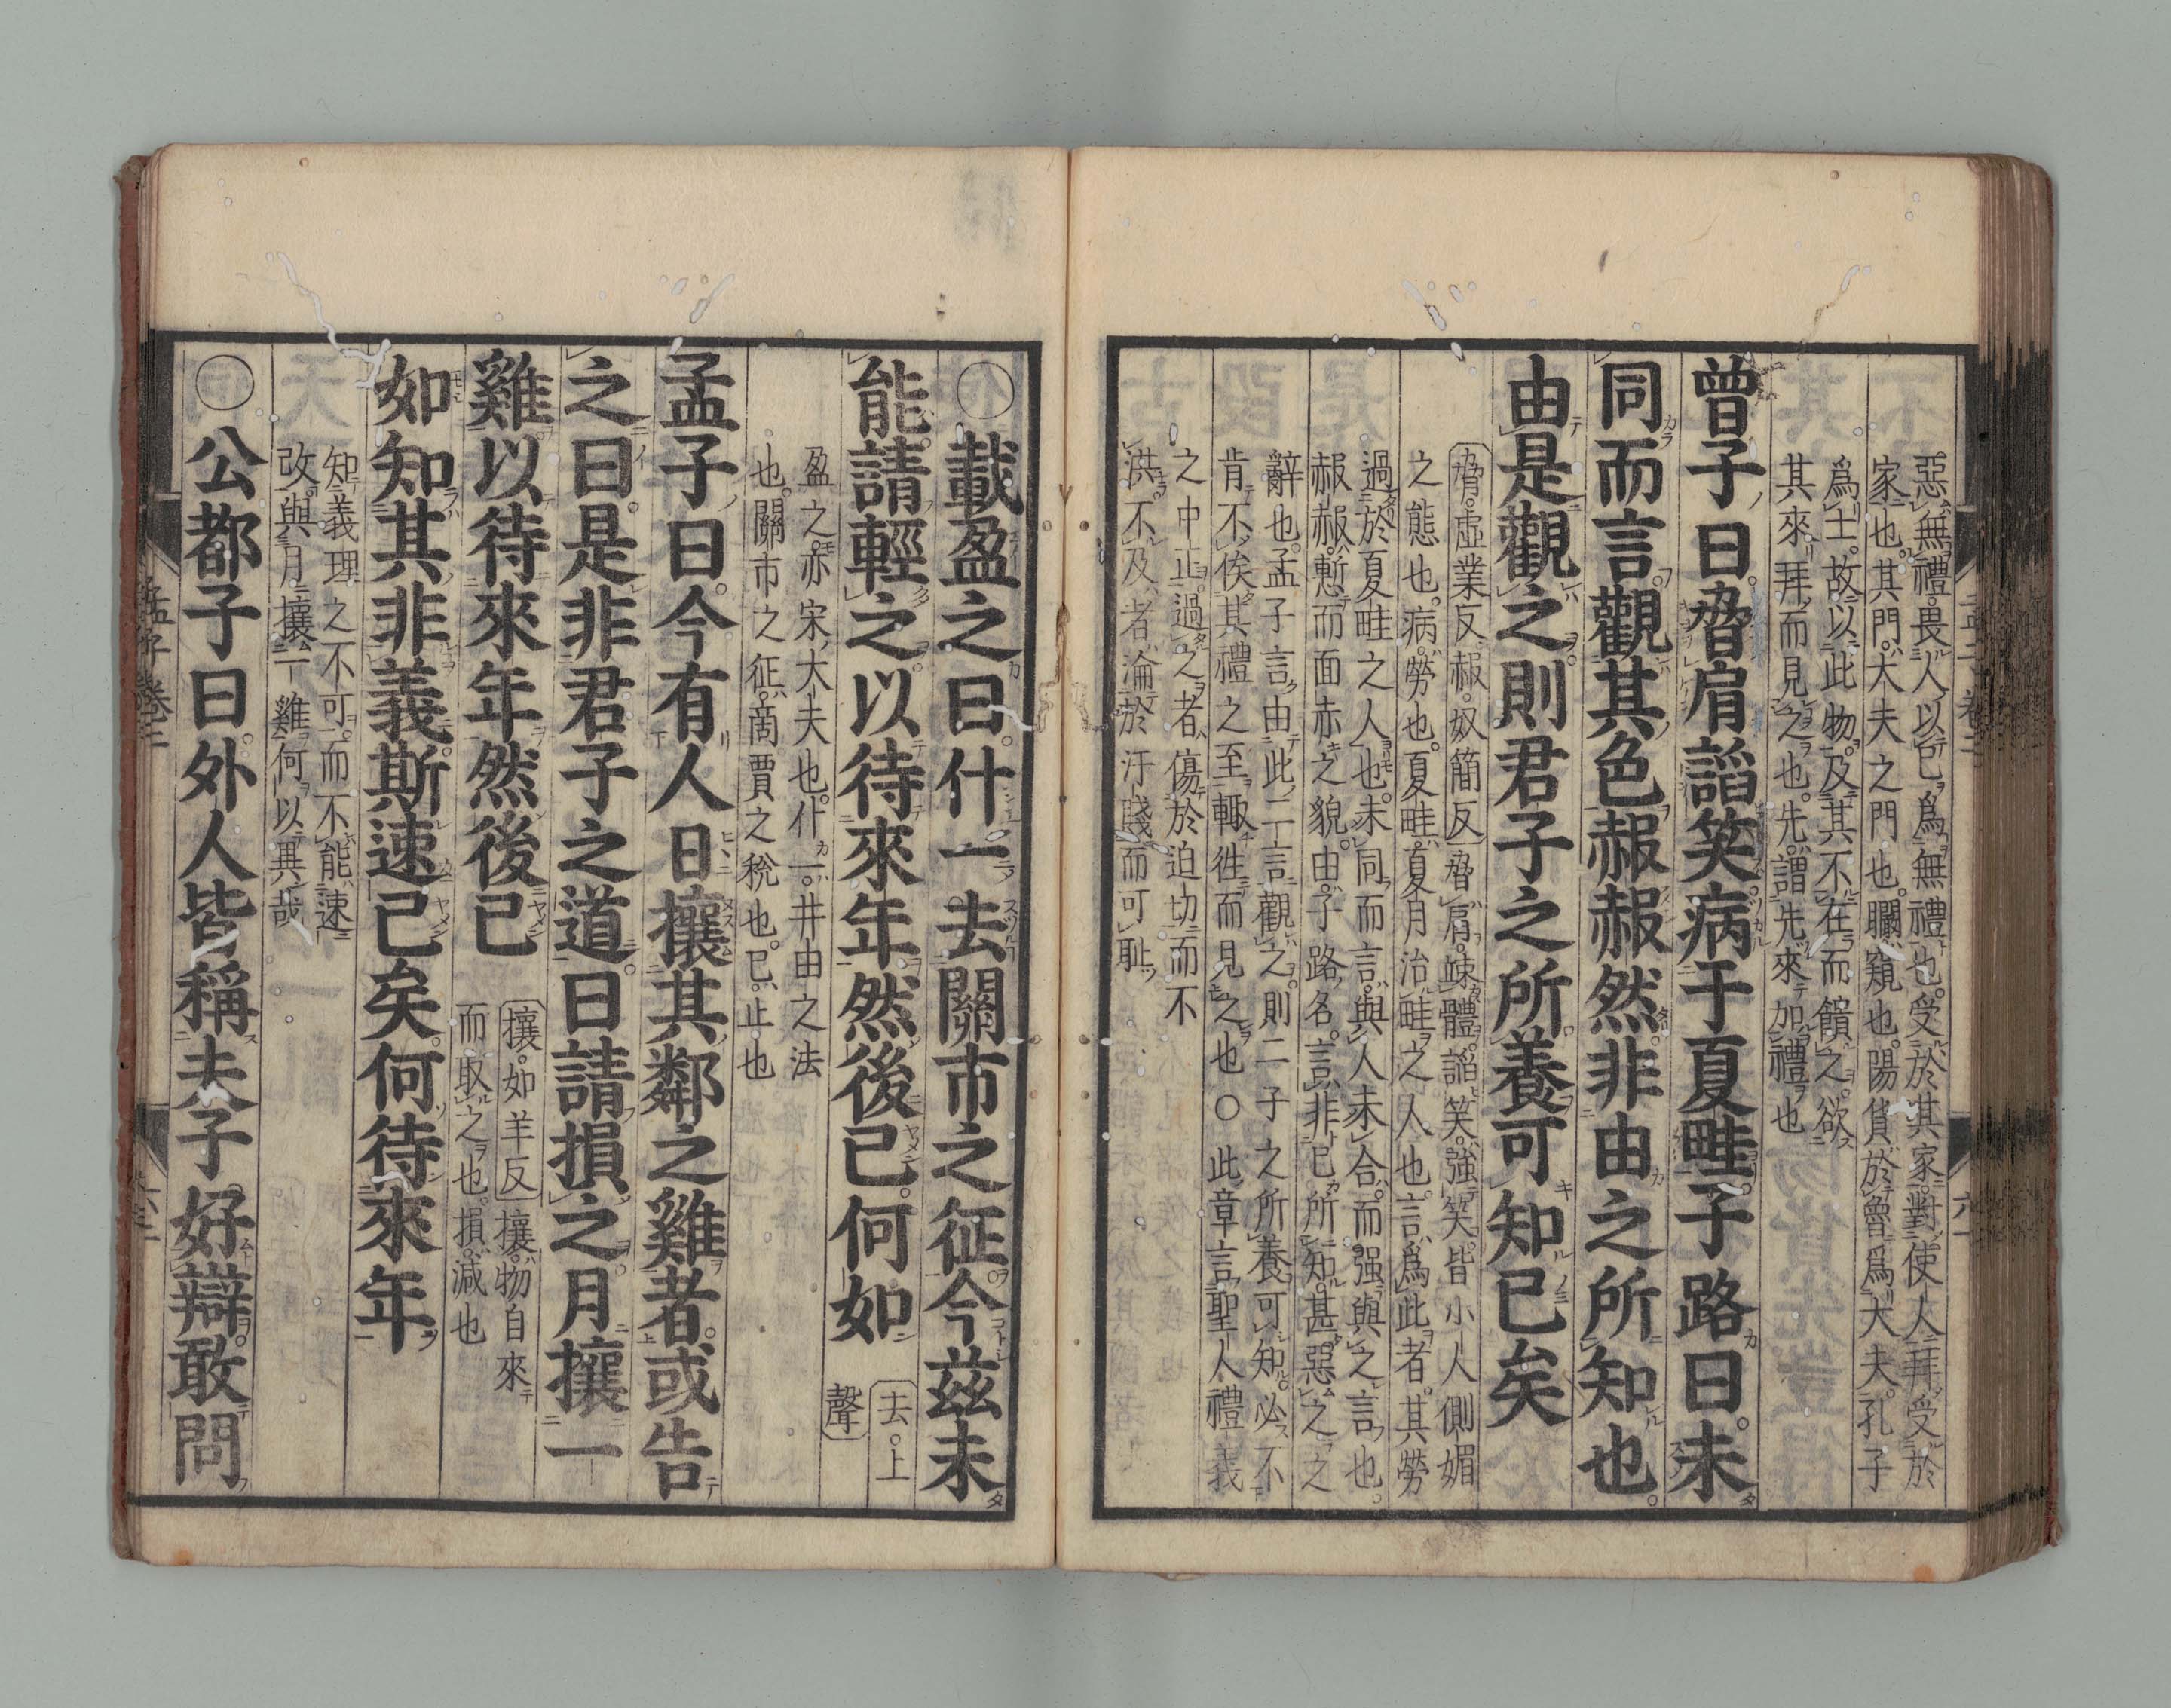 惡無禮畏人以已爲無禮也受於其家對使人拜受於
家也其門大夫之門也矙窺也陽貨於魯爲大夫孔子
爲士故以此物及其不在而饋之欲
其來拜而見之也先謂先來加禮也
曾子曰脅肩謟笑病于夏畦子路曰未
同而言觀其色赧赧然非由之所知也
由是觀之則君子之所養可知已矣
脅虛業反赧奴簡反脅肩竦體謟笑強笑皆小人側媚
之態也病勞也夏畦夏月治畦之人也言爲此者其勞
過於夏畦之人也未同而言與人未合而强與之言也
赧赧慙而面赤之貌由子路名言非已所知甚惡之之
辭也孟子言由此二言觀之則二子之所養可知必不
肯不俟其禮之至輒徃而見之也○此章言聖人禮義
之中正過之者傷於迫切而不
洪不及者淪於汙賤而可恥
○載盈之曰什一去關市之征今茲未
能請輕之以待來年然後已何如
去上
聲
盈之亦宋大夫也什一井由之法
也關市之征商賈之稅也已止也
孟子曰今有人日攘其鄰之雞者或告
之曰是非君子之道曰請損之月攘一
雞以待來年然後已
攘如羊反攘物自來
而取之也損減也
如知其非義斯速已矣何待來年
知義理之不可而不能速
改與月攘一雞何以異哉
○公都子曰外人皆稱夫子好辯敢問
孟子 卷三